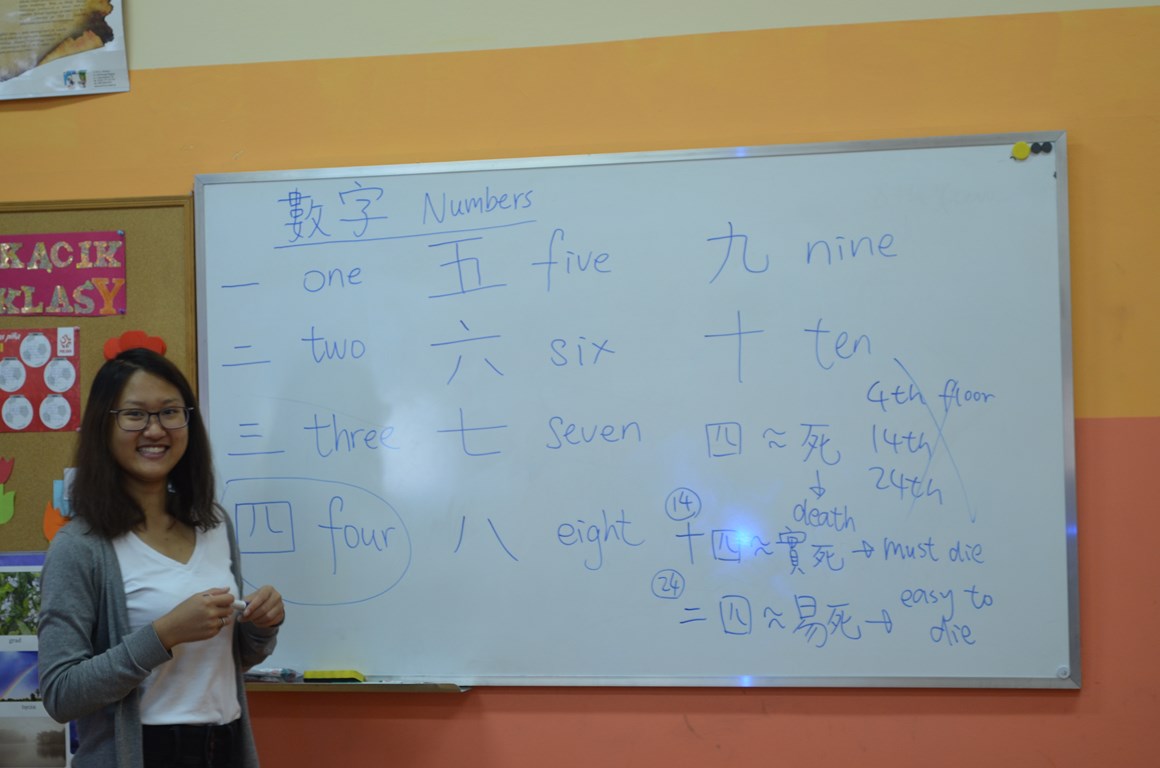 數字 Numbers
一 one 五 five 九 nine
二 two 六 six 十 ten
三 three 七 seven
四 four 八 eight
4th floor
四 ≈ 死 14th
↓ 24th
death
⑭
十四 ≈ 實死 → must die
㉔
二四 ≈ 易死 → easy to
die
KĄCIK
KLASY